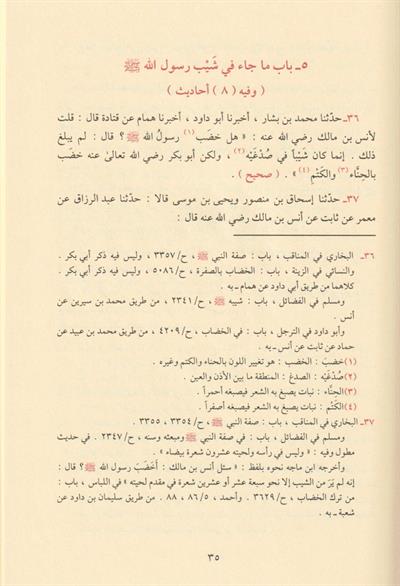 ٥ـ باب ما جاء في شَيْب رسول الله ﷺ
( وفيه ( ٨ ) أحاديث )
٣٦ـ حدّثنا محمد بن بشار ، أخبرنا أبو داود ، أخبرنا همام عن قتادة قال : قلت
لأنس بن مالك رضي الله عنه : « هل خضَب(١) رسولُ الله ﷺ ؟ قال : لم يبلغ
ذلك . إنما كان شَيْباً في صُدْغَيْه(٢) ، ولكن أبو بكر رضي الله تعالىٰ عنه خضَب
بالحِنَّاء(٣) والكَتْم(٤) » . ( صحيح ) .
٣٧ـ حدّثنا إسحاق بن منصور ويحيى بن موسى قالا : حدّثنا عبد الرزاق عن
معمر عن ثابت عن أنس بن مالك رضي الله عنه قال :
٣٦ـ البخاري في المناقب ، باب : صفة النبي ﷺ ، ح/ ٣٣٥٧ ، وليس فيه ذكر أبي بكر .
والنسائي في الزينة ، باب : الخضاب بالصفرة ، ح/ ٥٠٨٦ ، وليس فيه ذكر أبي بكر .
كلاهما من طريق أبي داود عن همام ـ به .
ومسلم في الفضائل ، باب : شيبه ﷺ ، ح/ ٢٣٤١ ، من طريق محمد بن سيرين عن
أنس .
وأبو داود في الترجل ، باب : في الخضاب ، ح/ ٤٢٠٩ ، من طريق محمد بن عبيد عن
حماد عن ثابت عن أنس ـ به .
(١) خضبَ : الخضب : هو تغيير اللون بالحناء والكتم وغيره .
(٢) صُدْغَيْه : الصدغ : المنطقة ما بين الأذن والعين .
(٣) الحِنَّاء : نبات يصبغ به الشعر فيصبغه أحمراً .
(٤) الكَتْم : نبات يصبغ به الشعر فيصبغه أصفراً .
٣٧ـ البخاري في المناقب ، باب : صفة النبي ﷺ ، ح/ ٣٣٥٤ ، ٣٣٥٥ .
ومسلم في الفضائل ، باب : في صفة النبي ﷺ ومبعثه وسنه ، ح/ ٢٣٤٧ . في حديث
مطول وفيه : « وليس في رأسه ولحيته عشرون شعرة بيضاء » .
وأخرجه ابن ماجه نحوه بلفظ : « سئل أنس بن مالك : أَخَضَبَ رسول الله ﷺ ؟ قال :
إنه لم يَرَ من الشيب إلا نحو سبعة عشر أو عشرين شعرة في مقدم لحيته » في اللباس ، باب :
من ترك الخضاب ، ح/ ٣٦٢٩ . وأحمد ، ٥/ ٨٦ ، ٨٨ . من طريق سليمان بن داود عن
شعبة ـ به .
٣٥